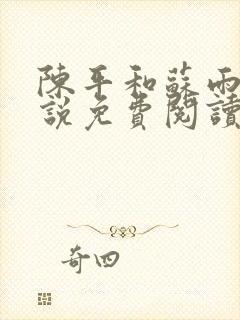 陳平和蘇雨
說免費閱讀
奇四